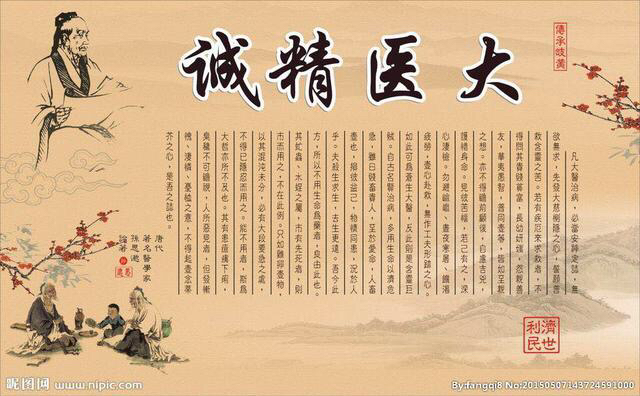 傳承岐黃
大医精诚
凡大醫治病，必當安神定誌，無
欲無求，先發大慈惻隱之心，誓願普
救含靈之苦。若有疾厄來求救者，不
得問其貴賤貧富，長幼妍媸，怨親善
友，華夷愚智，普同壹等，皆如至親
之想。亦不得瞻前顧後，自慮吉兇，
護惜身命。見彼苦惱，若己有之，深
心淒愴。勿避嶮巇、晝夜寒暑、饑渴
疲勞，壹心赴救，無作工夫形跡之心。
如此可為蒼生大醫，反此則是含靈巨
賊。自古名賢治病，多用生命以濟危
急，雖曰賤畜貴人，至於愛命，人畜
壹也，損彼益己，物情同患，況於人
乎。夫殺生求生，去生更遠。吾今此
方，所以不用生命為藥者，良由此也。
其虻蟲、水蛭之屬，市有先死者，則
市而用之，不在此例。只如雞卵壹物，
以其混沌未分，必有大段要急之處，
不得已隱忍而用之。能不用者，斯為
大哲亦所不及也。其有患瘡痍下痢，
臭穢不可瞻視，人所惡見者，但發慚
愧、淒憐、憂恤之意，不得起壹念蒂
芥之心，是吾之誌也。
唐代
著名醫學家
孫思邈
論著
濟世
利民
昵图网 www.nipic.com
By:fangqi8 No:20150507143724591000